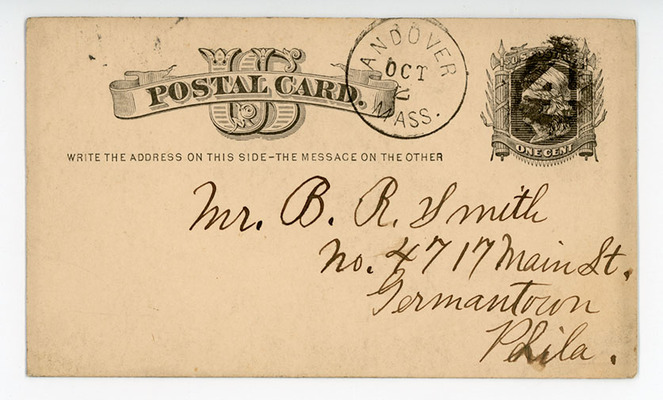 US
POSTAL CARD.
ANDOVER
OCT
MASS.
ONE CENT
WRITE THE ADDRESS ON THIS SIDE-THE MESSAGE ON THE OTHER
Mr. B. R. Smith
No. 4717 Main St.
Germantown
Phila.